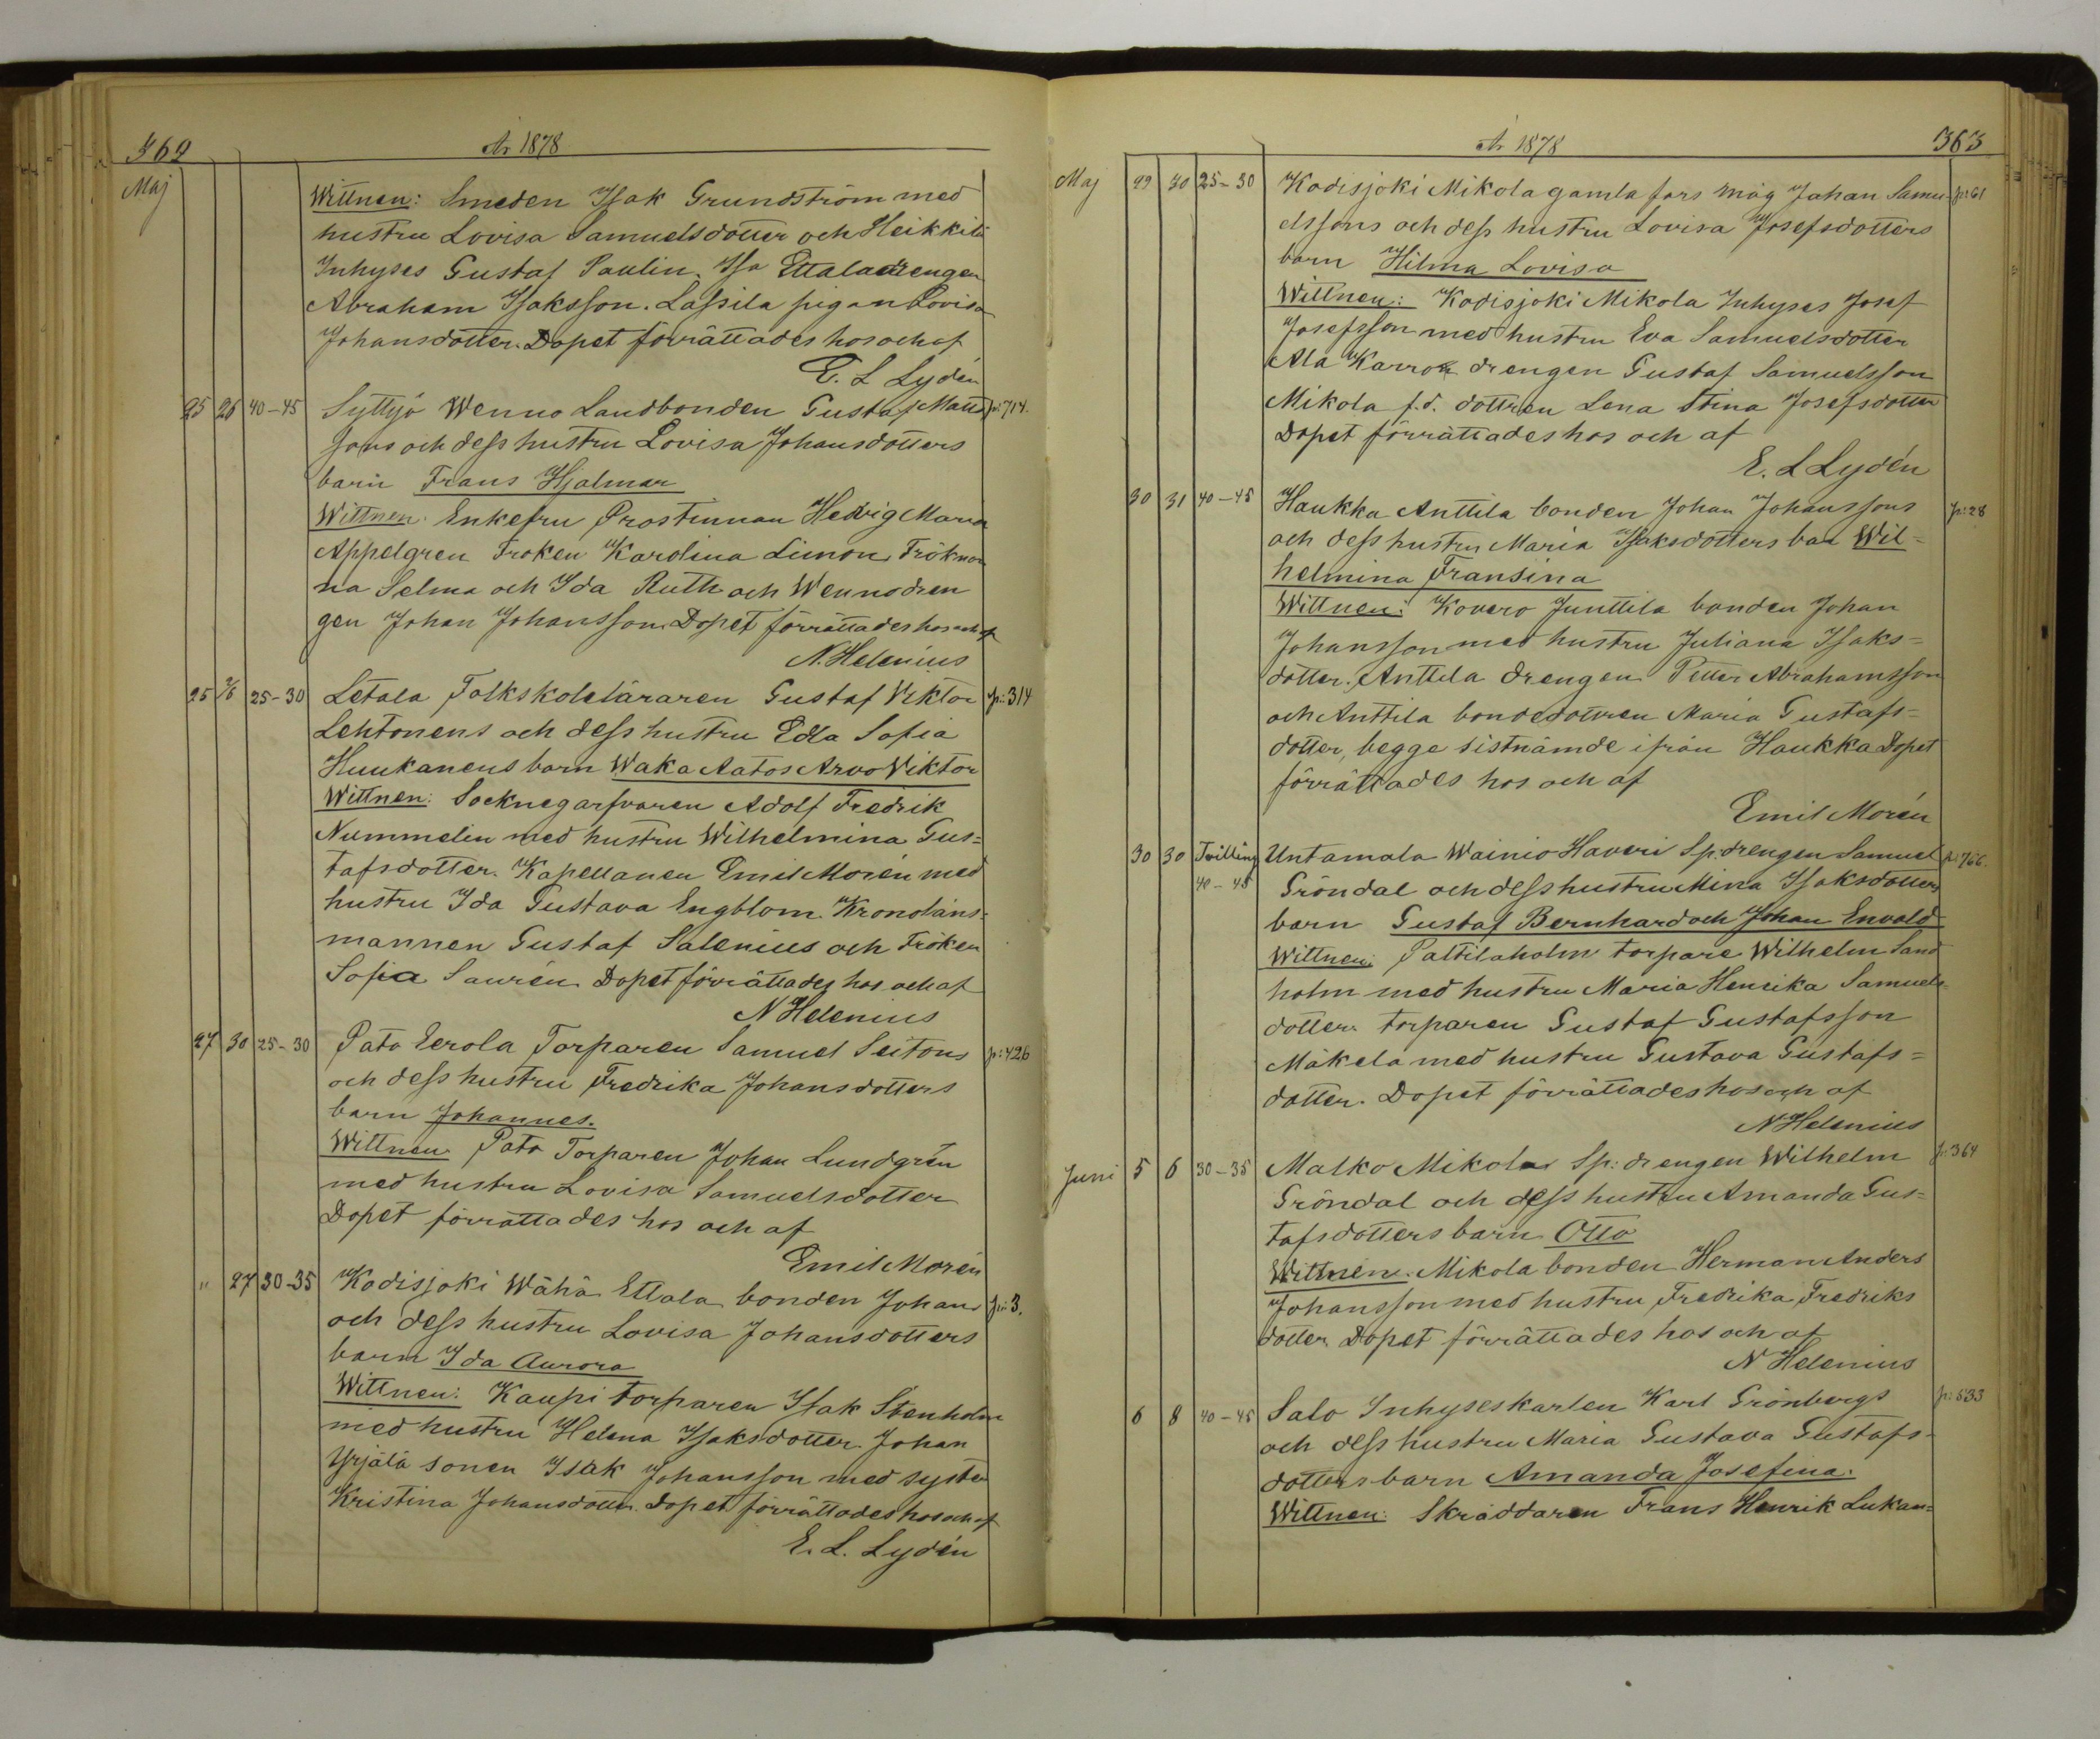 369
År 1878
Maj
Wittnen: Smeden Isak Grundström med
hustru Lovisa Samuelsdotter och Heikkilä
Inhyses Gustaf Paulin. Iso Ettala drengen
Abraham Isaksson. Lassila pigan Lovisa
Johansdotter. Dopet förrättades hos och af
E. L Lydén
25 26 40-45 Syttyö Wenno Landbonden Gustaf Matts p: 714.
sons och dess hustru Lovisa Johansdotters
barn Frans Hjalmar
Wittnen: Enkefru Prostinnan Hedvig Maria
Appelgren Fröken Karolina Limon Fröknar
na Selma och Ida Ruth och Wenno dren
gen Johan Johansson. Dopet förrättades hos och af
N. Helenius
25 2/6 25-30 Letala Folkskoleläraren Gustaf Viktor p: 314
Lehtonens och dess hustru Edla Sofia
Huukanens barn Waka Aatos Arvo Viktor
Wittnen: Socknegarfvaren Adolf Fredrik
Nummelin med hustru Wilhelmina Gus=
tafsdotter. Kapellanen Emil Morén med
hustru Ida Gustava Engblom. Kronoläns=
mannen Gustaf Salenius och Fröken
Sofia Saurén Dopet förrättades hos och af
N Helenius
27 30 25-30 Pato Eerola Torparen Samuel Seitons p: 426
och dess hustru Fredrika Johansdotters
barn Johannes.
Wittnen: Pato Torparen Johan Lundgrén
med hustru Lovisa Samuelsdotter
Dopet förrättades hos och af
Emil Morén
" 27 30-35 Kodisjoki Wähä Ettala bonden Johans p: 3.
och dess hustru Lovisa Johansdotters
barn Ida Aurora
Wittnen: Kaupi torparen Isak Stenholm
med hustru Helena Isaksdotter. Johan
Yrjälä sonen Isak Johansson med syster
Kristina Johansdotter. Dopet förrättades hos och af
E. L. Lydén
År 1878
363
Maj 29 30 25-30 Kodisjoki Mikola gamla fars måg Johan Samu- p: 61
elssons och dess hustru Lovisa Josefsdotters
barn Hilma Lovisa
Wittnen: Kodisjoki Mikola Inhyses Josef
Josefsson med hustru Eva Samuelsdotter
Ala Karro drengen Gustaf Samuelsson
Mikola f.d. dottren Lena Stina Josefsdotter
Dopet förrättades hos och af
E. L Lydén
30 31 40-45 Haukka Anttila bonden Johan Johanssons p: 28
och dess hustru Maria Isaksdotters ba Wil=
helmina Fransina
Wittnen: Kovero Junttila bonden Johan
Johansson med hustru Juliana Isaks=
dotter. Anttila drengen Petter Abrahamsson
och Anttila bondedottren Maria Gustafs=
dotter, begge sistnämde ifrån Haukka Dopet
förrättades hos och af
Emil Morén
30 30 Tvilling Untamala Wainio Haveri Sp. drengen Samuel
40-45 Gröndal och dess hustru Mina Isaksdotters
barn Gustaf Bernhard och Johan Envald
Wittnen: Palttilaholm torpare Wilhelm Sand
holm med hustru Maria Henrika Samuels=
dotter. torparen Gustaf Gustafsson
Mäkelä med hustru Gustava Gustafs=
dotter. Dopet förrättades hos och af
N Helenius
Juni 5 6 30-35 Malko Mikola Sp: drengen Wilhelm p: 364
Gröndal och dess hustru Amanda Gus=
tafsdotters barn Otto
Wittnen: Mikola bonden Herman Anders
Johansson med hustru Fredrika Fredriks
dotter. Dopet förrättades hos och af
N Helenius
6 8 40-45 Salo Inhyseskarlen Karl Grönbergs p: 533
och dess hustru Maria Gustava Gustafs-
dotters barn Amanda Josefina.
Wittnen: Skräddaren Frans Henrik Lukan=